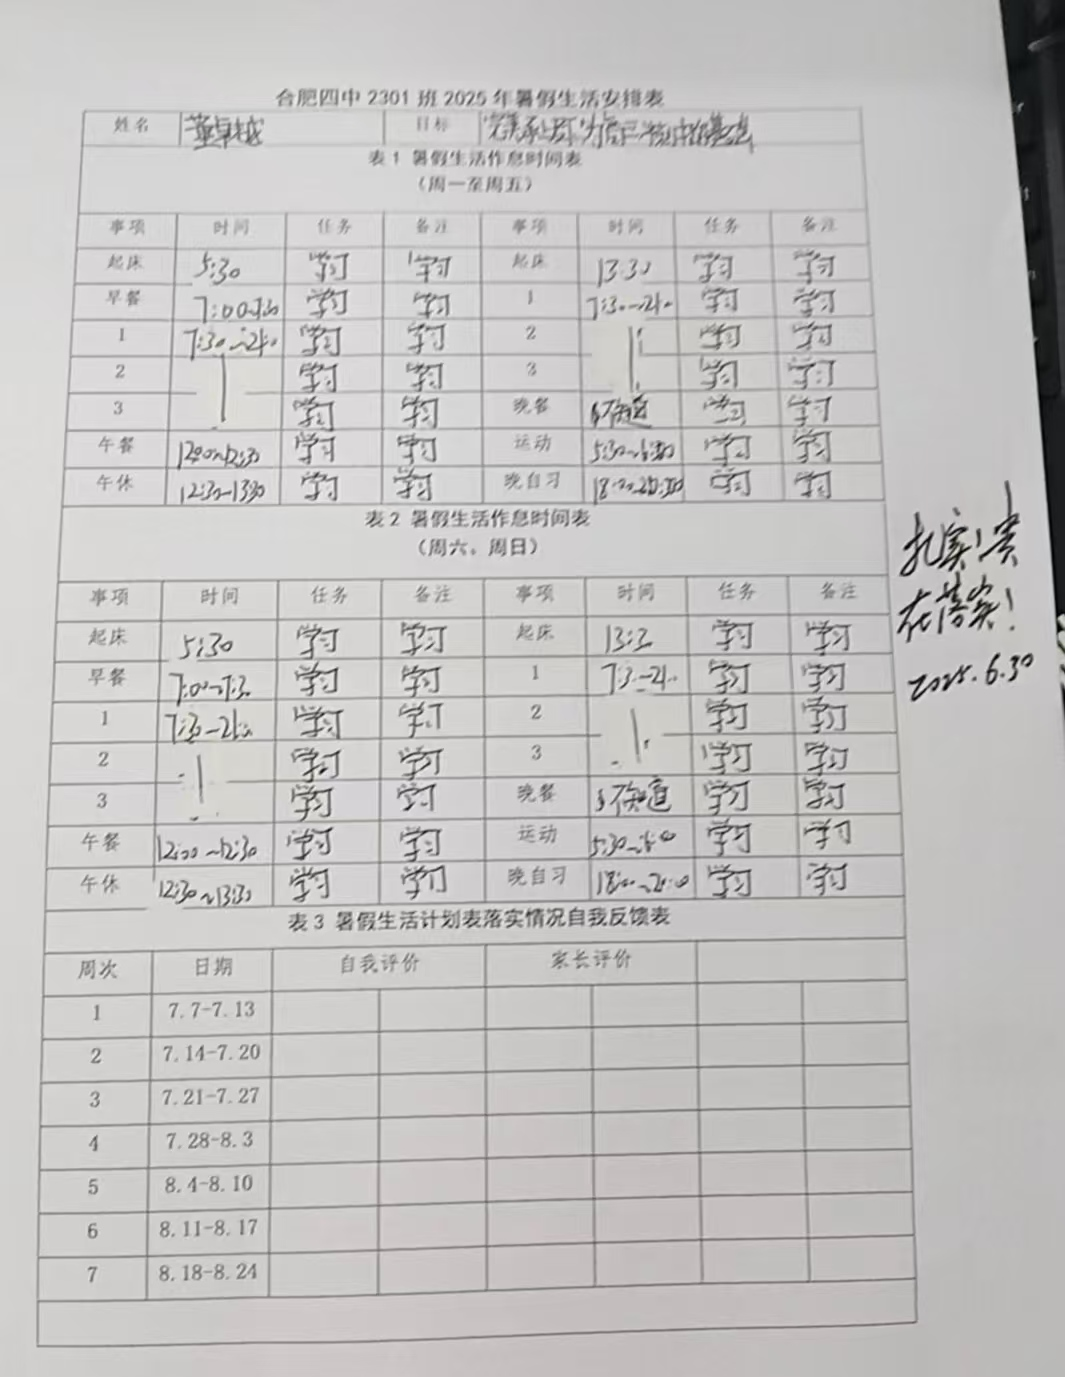 合肥四中2301班2025年暑假生活安排表
姓名 董卓越 目标
表1 暑假生活作息时间表
（周一至周五）
事项 时间 任务 备注 事项 时间 任务 备注
起床 5:30 学习 学习 起床 13:30 学习 学习
早餐 7:00~7:30 学习 学习 1 7:30~21:0 学习 学习
1 7:30~21:0 学习 学习 2 学习 学习
2 学习 学习 3 学习 学习
3 学习 学习 晚餐 不知道 学习 学习
午餐 12:00~12:30 学习 学习 运动 5:30~6:00 学习 学习
午休 12:30~13:30 学习 学习 晚自习 18:00~ 学习 学习
表2 暑假生活作息时间表
（周六、周日）
事项 时间 任务 备注 事项 时间 任务 备注
起床 5:30 学习 学习 起床 13:3 学习 学习
早餐 7:00~7:3 学习 学习 1 7:3~21:0 学习 学习
1 7:30~21:0 学习 学习 2 学习 学习
2 学习 学习 3 学习 学习
3 学习 学习 晚餐 不知道 学习 学习
午餐 12:00~12:30 学习 学习 运动 5:30~6:0 学习 学习
午休 12:30~13:30 学习 学习 晚自习 18:00~21:0 学习 学习
扎实！贵
在落实！
2025.6.30
表3 暑假生活计划表落实情况自我反馈表
周次 日期 自我评价 家长评价
1 7.7-7.13
2 7.14-7.20
3 7.21-7.27
4 7.28-8.3
5 8.4-8.10
6 8.11-8.17
7 8.18-8.24